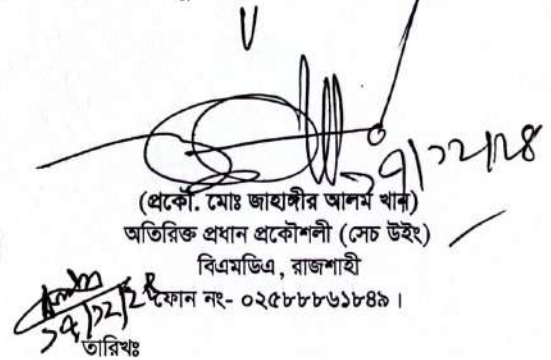 ১৭/১২/২৪
(প্রকৌ. মোঃ জাহাঙ্গীর আলম খান)
অতিরিক্ত প্রধান প্রকৌশলী (সেচ উইং)
বিএমডিএ, রাজশাহী
ফোন নং- ০২৫৮৮৮৬১৮৪৯।
১৭/১২/২৪
তারিখঃ